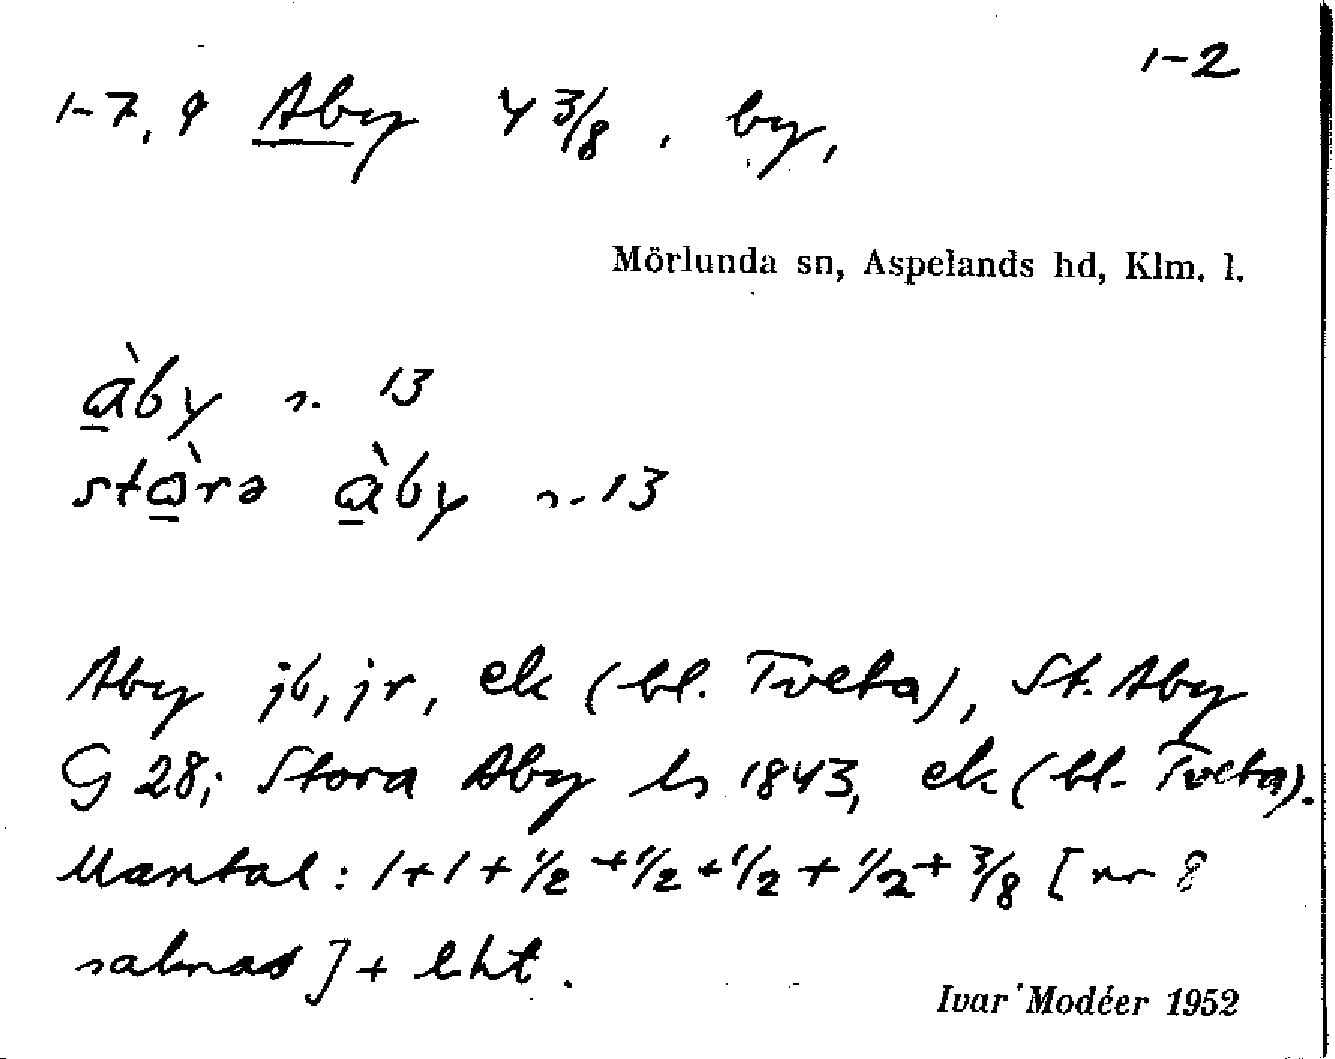 1-2
1-7, 9 Åby 4 3/8, by,
Mörlunda sn, Aspelands hd, Klm. l.
àby n. 13
stòrə àby n. 13
Åby jb, jr, ek (bl. Tveta), St. Åby
G 28; Stora Åby ls 1843, ek (bl. Tveta).
Mantal: 1+1+1/2+1/2+1/2+1/2+3/8 [nr 8
saknas] + lht.
Ivar Modéer 1952